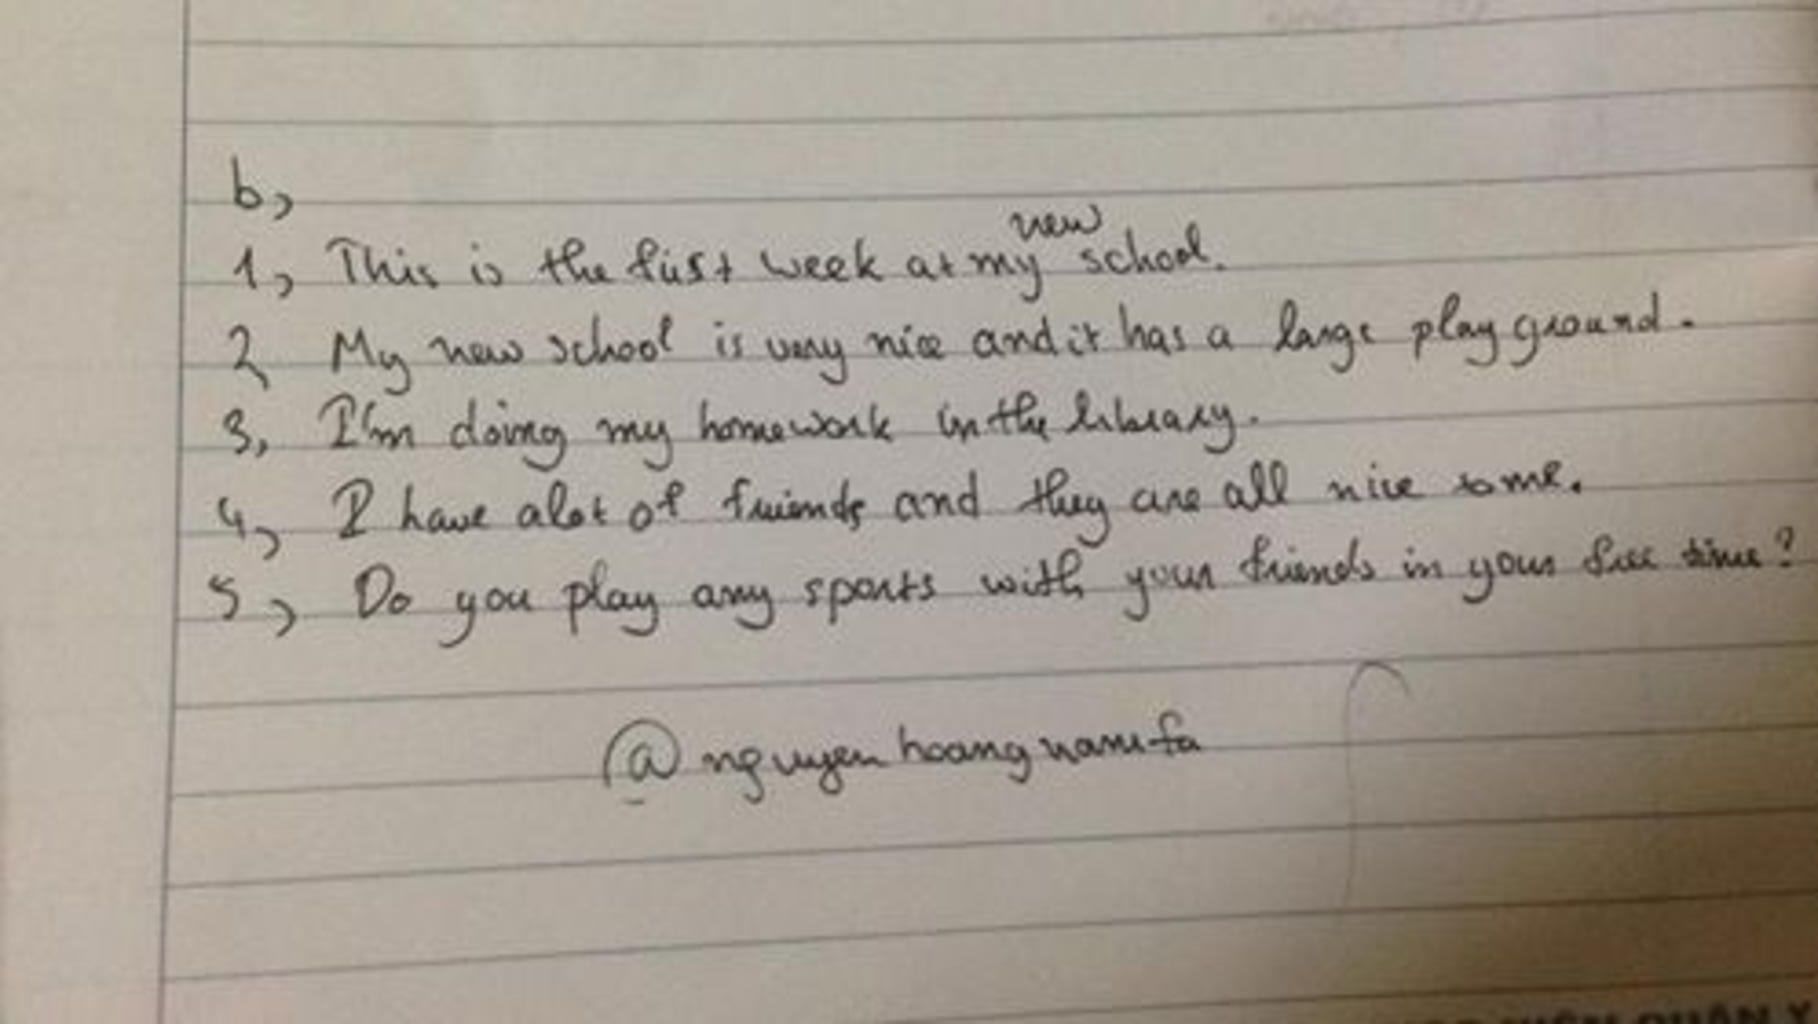 b,
1, This is the first week at my new school.
2, My new school is very nice and it has a large play ground.
3, I'm doing my homework in the library.
4, I have alot of friends and they are all nice to me.
5, Do you play any sports with your friends in your free time?
@nguyen hoang nam-fa
QUÂN Y